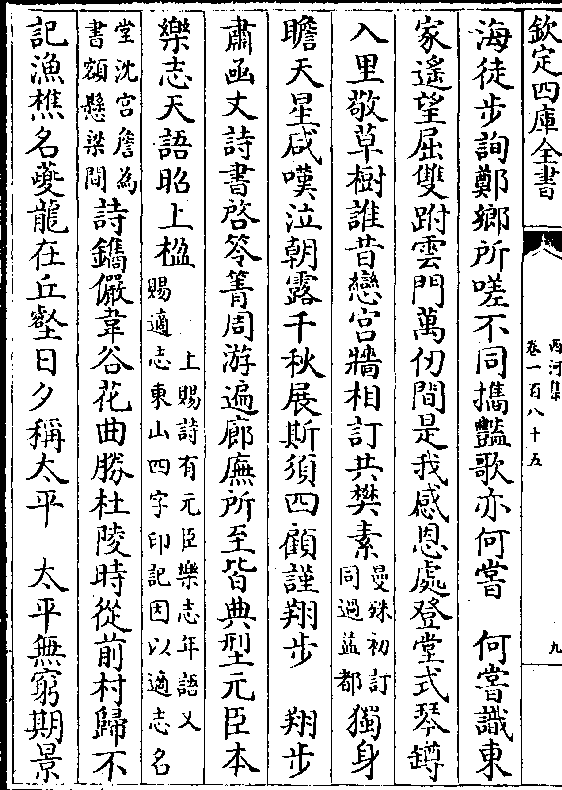 欽定四庫全書
西河集
卷一百八十五
九
海徒步詢鄭鄉所嗟不同攜豔歌亦何嘗　何嘗識東
家遙望屈雙跗雲門萬仞間是我感恩處登堂式琴罇
入里敬草樹誰昔戀宮牆相訂共樊素曼殊初訂同過益都獨身
瞻天星咸嘆泣朝露千秋展斯須四顧謹翔步　翔步
肅函丈詩書啓笭箐周游遍廊廡所至皆典型元臣本
樂志天語昭上楹上賜詩有元臣樂志年語又賜適志東山四字印記因以適志名
堂沈宮詹為書額懸梁間詩鐫儼韋谷花曲勝杜陵時從前村歸不
記漁樵名夔龍在丘壑日夕稱太平　太平無窮期景